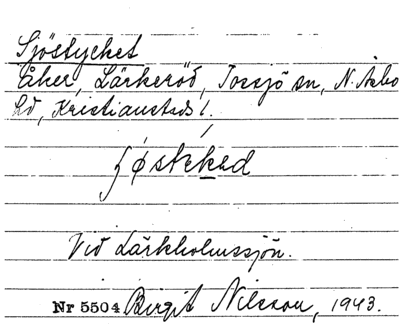 Sjöstycket
Åker, Lärkeröd, Tossjö sn, N. Åsbo
hd, Kristianstads l.
Vid Lärkholmssjön.
Nr 5504 Birgit Nilsson, 1943.